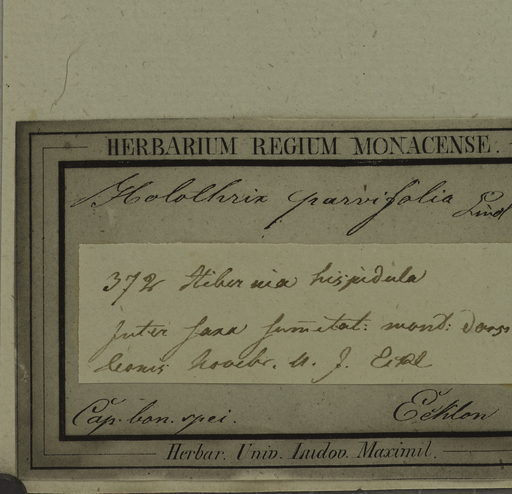 HERBARIUM REGIUM MONACENSE.
Holothrix parvifolia Lindl
372 Hibernia hispidula
Inter saxa summitat: mont: Dors
Leonis Novebr. U. J. Eckl
Cap. bon. spei. Ecklon
Herbar. Univ. Ludov. Maximil.